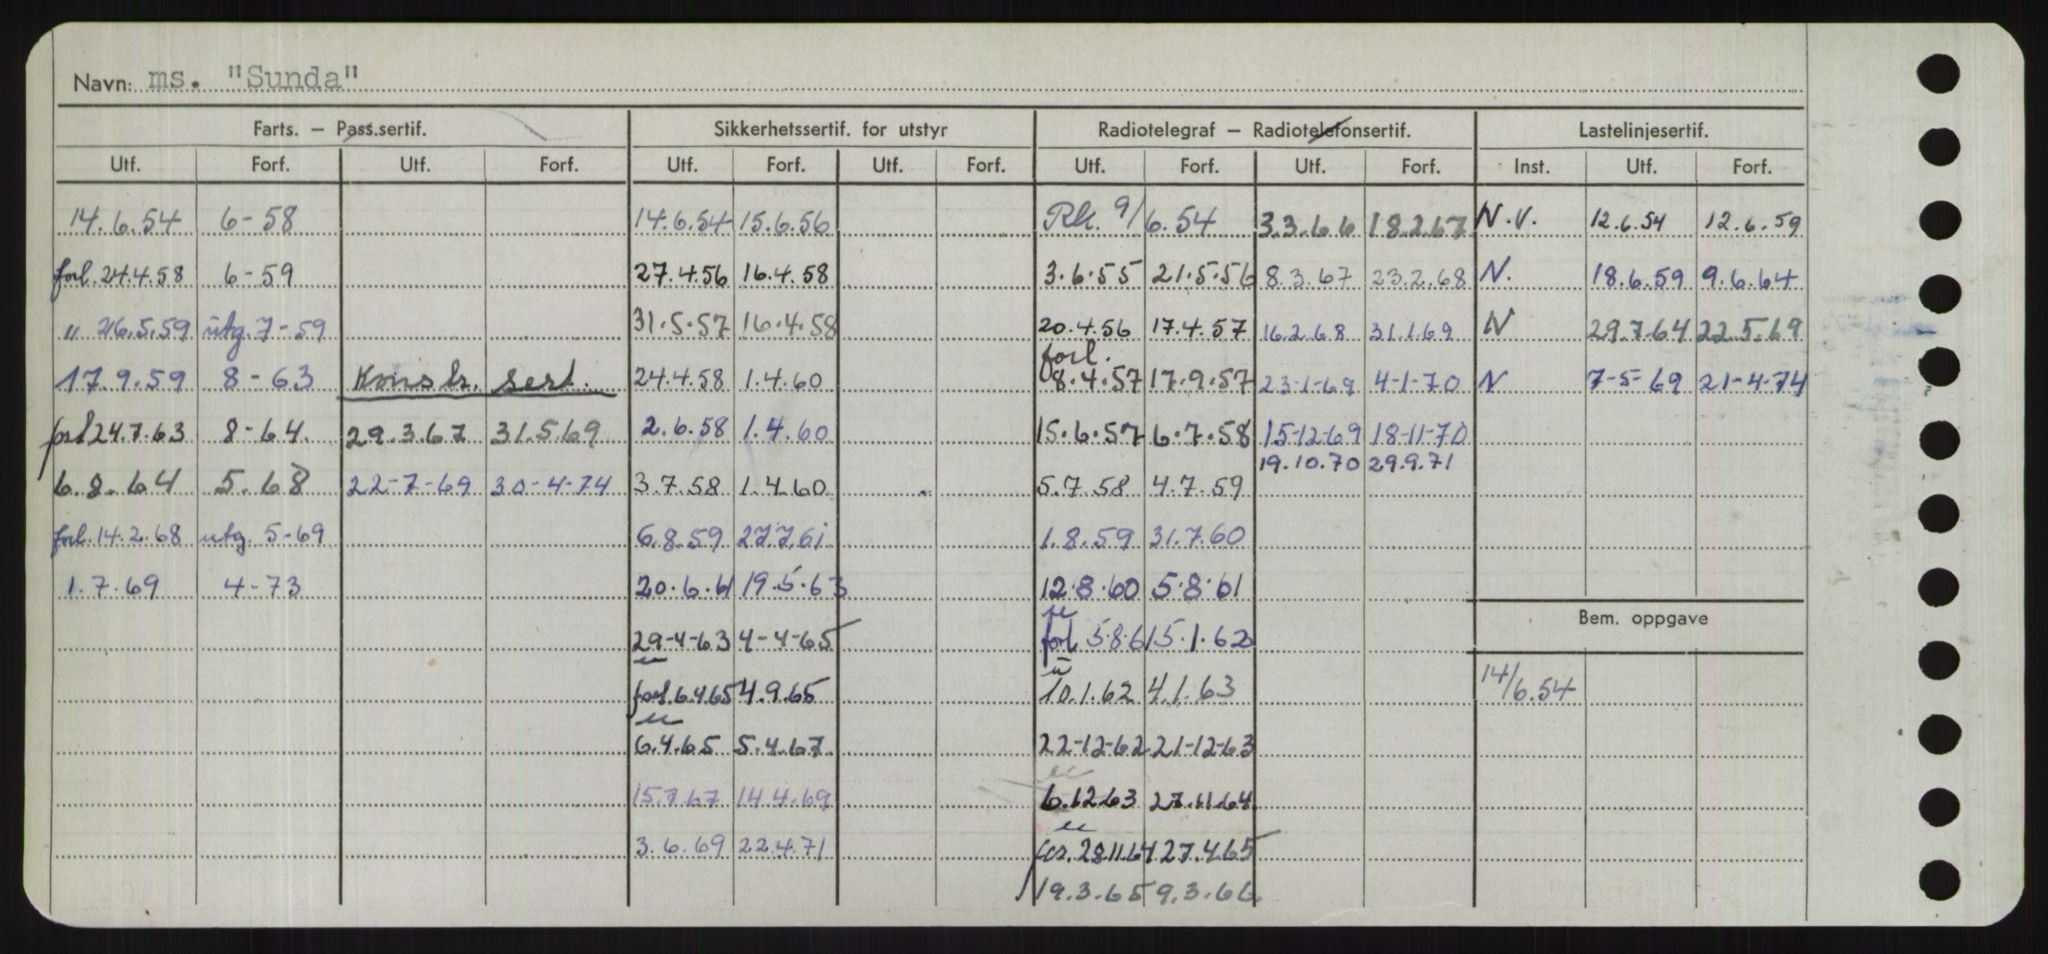 Navn: ms. "Sunda"
Farts. – Pass.sertif. Sikkerhetssertif. for utstyr Radiotelegraf – Radiotelefonsertif. Lastelinjesertif.
Utf. Forf. Utf. Forf. Utf. Forf. Utf. Forf. Utf. Forf. Utf. Forf. Inst. Utf. Forf.
14.6.54 6-58 14.6.54 15.6.56 Rk. 9/6.54 3.3.66 18.2.67 N.V. 12.6.54 12.6.59
forl. 24.4.58 6-59 27.4.56 16.4.58 3.6.55 21.5.56 8.3.67 23.2.68 N. 18.6.59 9.6.64
" 26.5.59 utg. 7-59 31.5.57 16.4.58 20.4.56 17.4.57 16.2.68 31.1.69 N 29.7.64 22.5.69
17.9.59 8-63 Konstr. sert. 24.4.58 1.4.60 forl. 8.4.57 17.9.57 23-1-69 4-1-70 N 7-5-69 21-4-74
forl 24.7.63 8-64. 29.3.67 31.5.69 2.6.58 1.4.60 15.6.57 6.7.58 15-12-69 18-11-70
19.10.70 29.9.71
6.8.64 5.68 22-7-69 30-4-74 3.7.58 1.4.60 5.7.58 4.7.59
forl. 14.2.68 utg. 5-69 6.8.59 27.7.61 1.8.59 31.7.60
1.7.69 4-73 20.6.61 19.5.63 12.8.60 5.8.61
Bem. oppgave
29-4-63 4-4-65 forl. 5.8.61 5.1.62
forl. 6.4.65 4.9.65 10.1.62 4.1.63 14/6.54
6.4.65 5.4.67 22-12-62 21-12-63
15.7.67 14.4.69 6.12.63 27.11.64
3.6.69 22.4.71 28.11.64 27.4.65
19.3.65 9.3.66.